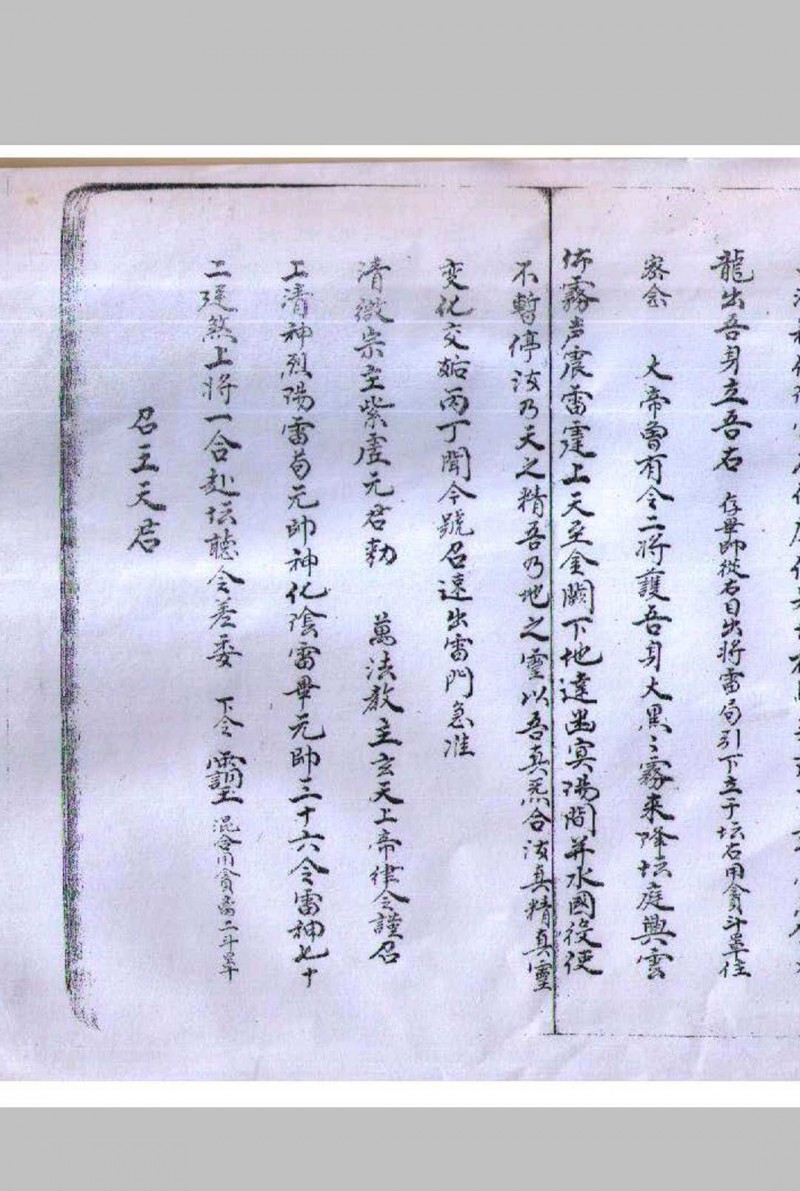 龍出吾身立吾右 存畢帥從右目出將雷局引下立于坛右用貪斗罩住
密念 大帝魯有令二將護吾身大黑〻霧来降坛庭興雲
佈霧声震雷霆上天至金闕下地達幽冥陽間并水國役使
不暫停汝乃天之精吾乃地之靈以吾真炁合汝真精真靈
变化交姤丙丁聞今號召速出雷門急准
清微宗主紫虗元君勑 萬法教主玄天上帝律令謹召
上清神烈陽雷苟元帥神化陰雷畢元帥三十六令雷神七十
二廷煞上将一合赴坛聴令差委 下令 混合用貪 二斗罩
召王天君